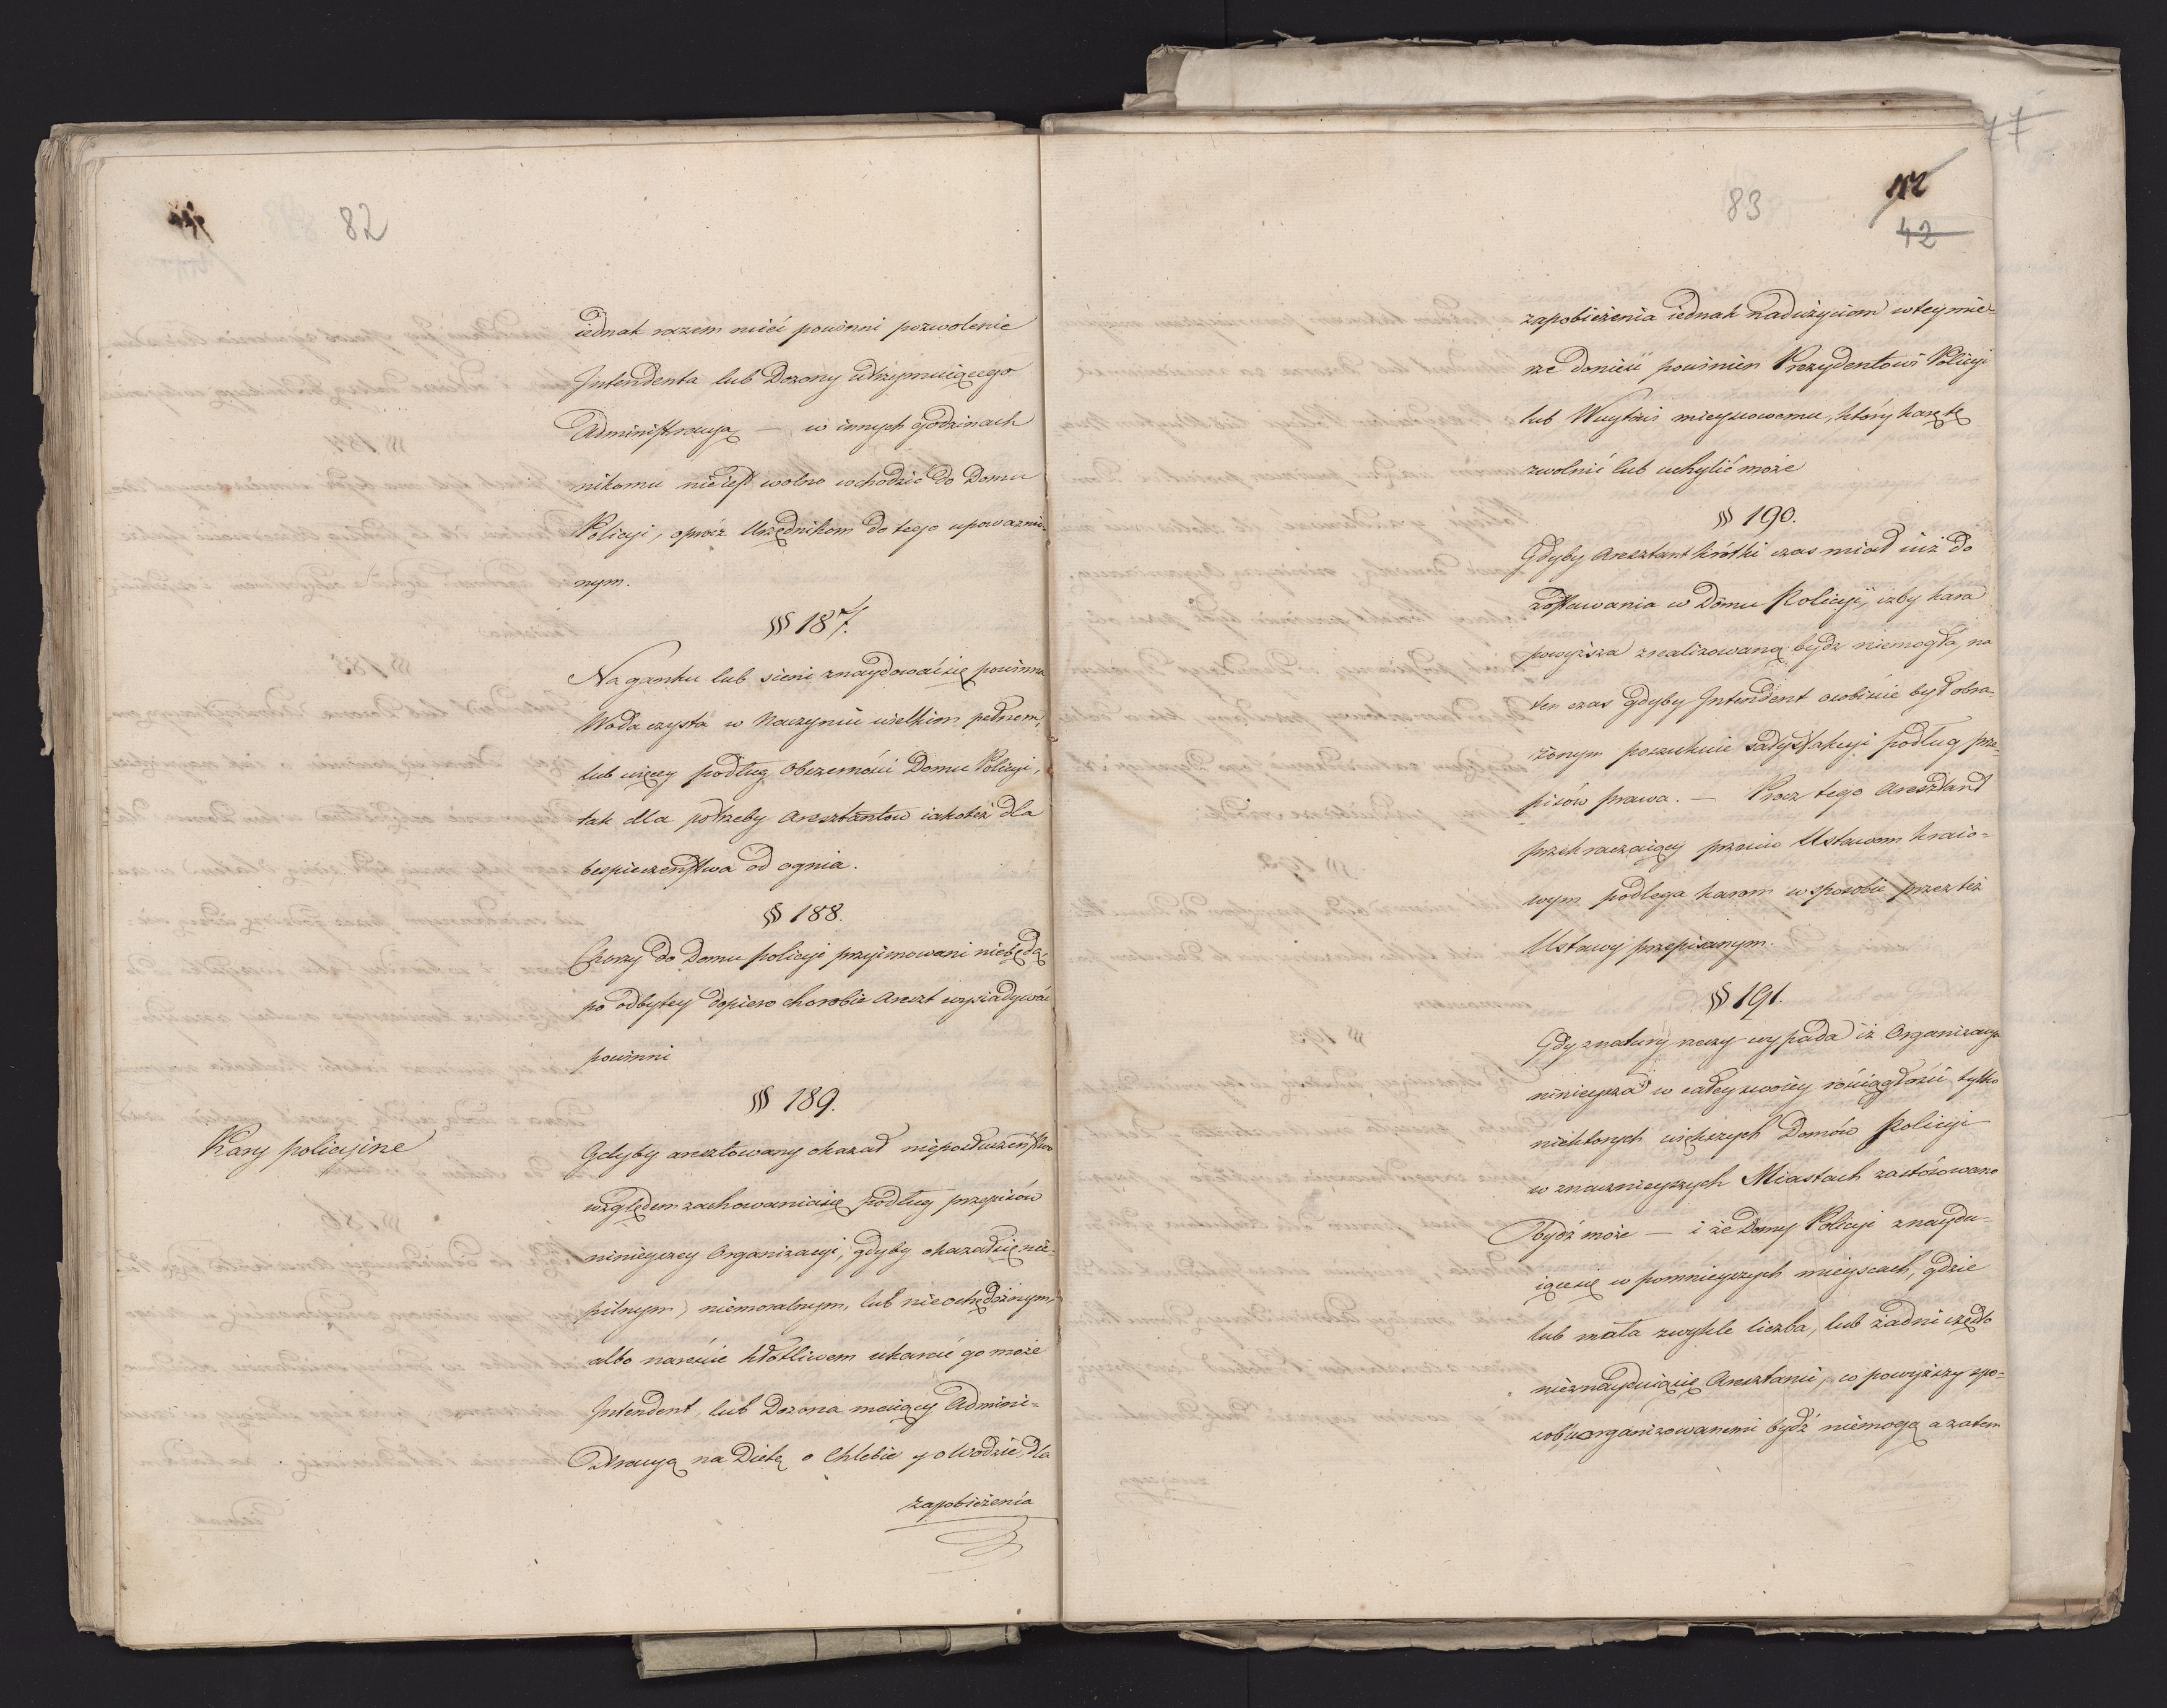 82
iednak razem mieć powinni pozwolenie
Intendenta lub Dozorcy utrzymuiącego
Administracyą — w innych godzinach
nikomu nieiest wolno wchodzić do Domu
Policyi, oprócz Urzędnikom do tego upoważnio-
nym.
§§ 187.
Na ganku lub sieni znaydować się powinna
Woda czysta w Naczyniu wielkim pełnem,
lub więcey podług Obszerności Domu Policyi,
tak dla potrzeby Aresztantow iakoteż dla
bespieczeństwa od ognia.
§ 188.
Chorzy do Domu policyi przyimowani niebędą
po odbytey dopiero chorobie Areszt wysiadywać
powinni
§§ 189.
Kary policyine
Gdyby aresztowany okazał nieposłuszeństwo
względem zachowania się podług przepisów
ninieyszey Organizacyi, gdyby okazał się nie-
pilnym, niemoralnym, lub nieochędożnym,
albo nareście kłótliwem ukarać go może
Intendent, lub Dozorca maiący Admini-
stracyą na Dietę o Chlebie y o Wodzie, dla
zapobieżenia
77
83
42
zapobieżenia iednak nadużyciom wtey mie-
rze donieść powinien Prezydentowi Policyi
lub Woytowi mieyscowemu, który karę tę
zwolnić lub uchylić może
§ 190.
Gdyby Aresztant krótki czas miał iuż do
zostawania w Domu Policyi, iżby kara
powyższa zrealizowaną bydz niemogła, na
ten czas gdyby Intendent osobiście był obra-
żonym poszukuie satysfakcyi podług prze-
pisów prawa. — Procz tego Aresztant
przekraczaiący przeciw Ustawom kraio-
wym podlega karom w sposobie przez też
Ustawy przepisanym.
§ 191.
Gdy znatury rzeczy wypada iż Organizacya
ninieysza w całey swoiey rościągłości tylko
niektorych większych Domów Policyi
w znacznieyszych Miastach zastósowana
bydź może — i że Domy Policyi znaydu-
iące się w pomnieyszych mieyscach, gdzie
lub mała zwykle liczba, lub żadni często
nieznayduią się Aresztanci, w powyższy spo-
sób uorganizowanemi bydź niemogą a zatem